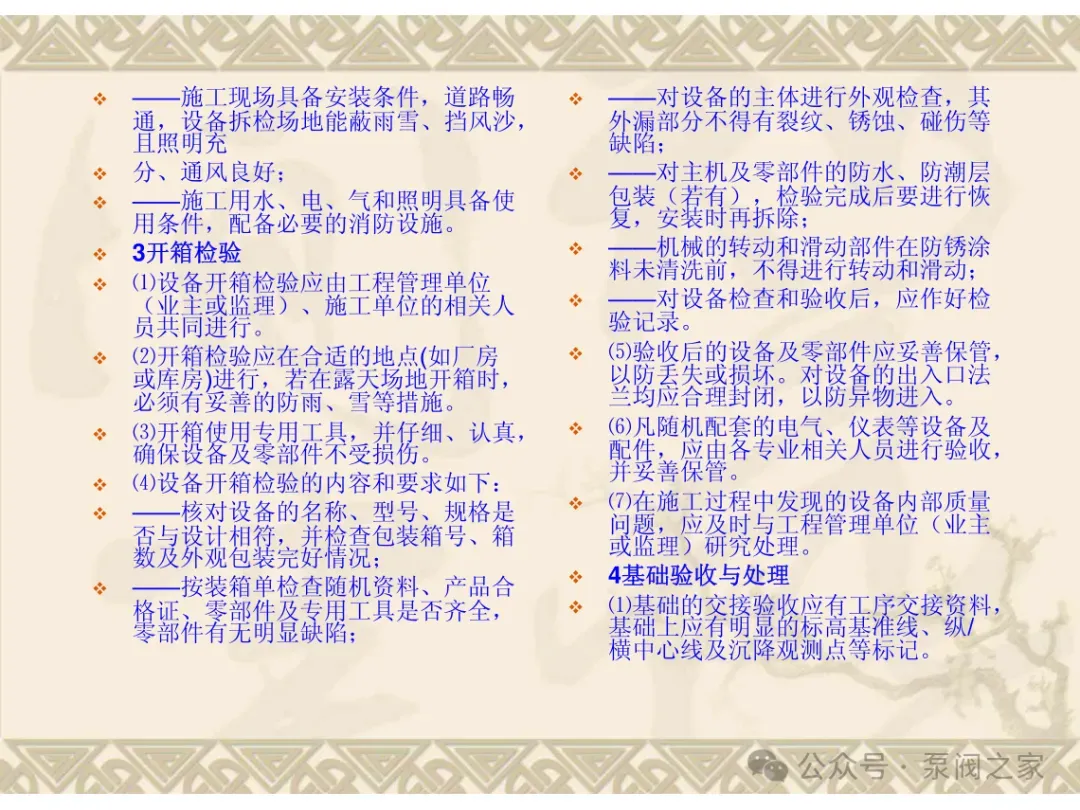 ——施工现场具备安装条件，道路畅
通，设备拆检场地能蔽雨雪、挡风沙，
且照明充
分、通风良好；
——施工用水、电、气和照明具备使
用条件，配备必要的消防设施。
3开箱检验
⑴设备开箱检验应由工程管理单位
（业主或监理）、施工单位的相关人
员共同进行。
⑵开箱检验应在合适的地点(如厂房
或库房)进行，若在露天场地开箱时，
必须有妥善的防雨、雪等措施。
⑶开箱使用专用工具，并仔细、认真，
确保设备及零部件不受损伤。
⑷设备开箱检验的内容和要求如下：
——核对设备的名称、型号、规格是
否与设计相符，并检查包装箱号、箱
数及外观包装完好情况；
——按装箱单检查随机资料、产品合
格证、零部件及专用工具是否齐全，
零部件有无明显缺陷；
——对设备的主体进行外观检查，其
外漏部分不得有裂纹、锈蚀、碰伤等
缺陷；
——对主机及零部件的防水、防潮层
包装（若有），检验完成后要进行恢
复，安装时再拆除；
——机械的转动和滑动部件在防锈涂
料未清洗前，不得进行转动和滑动；
——对设备检查和验收后，应作好检
验记录。
⑸验收后的设备及零部件应妥善保管，
以防丢失或损坏。对设备的出入口法
兰均应合理封闭，以防异物进入。
⑹凡随机配套的电气、仪表等设备及
配件，应由各专业相关人员进行验收，
并妥善保管。
⑺在施工过程中发现的设备内部质量
问题，应及时与工程管理单位（业主
或监理）研究处理。
4基础验收与处理
⑴基础的交接验收应有工序交接资料，
基础上应有明显的标高基准线、纵/
横中心线及沉降观测点等标记。
公众号 · 泵阀之家